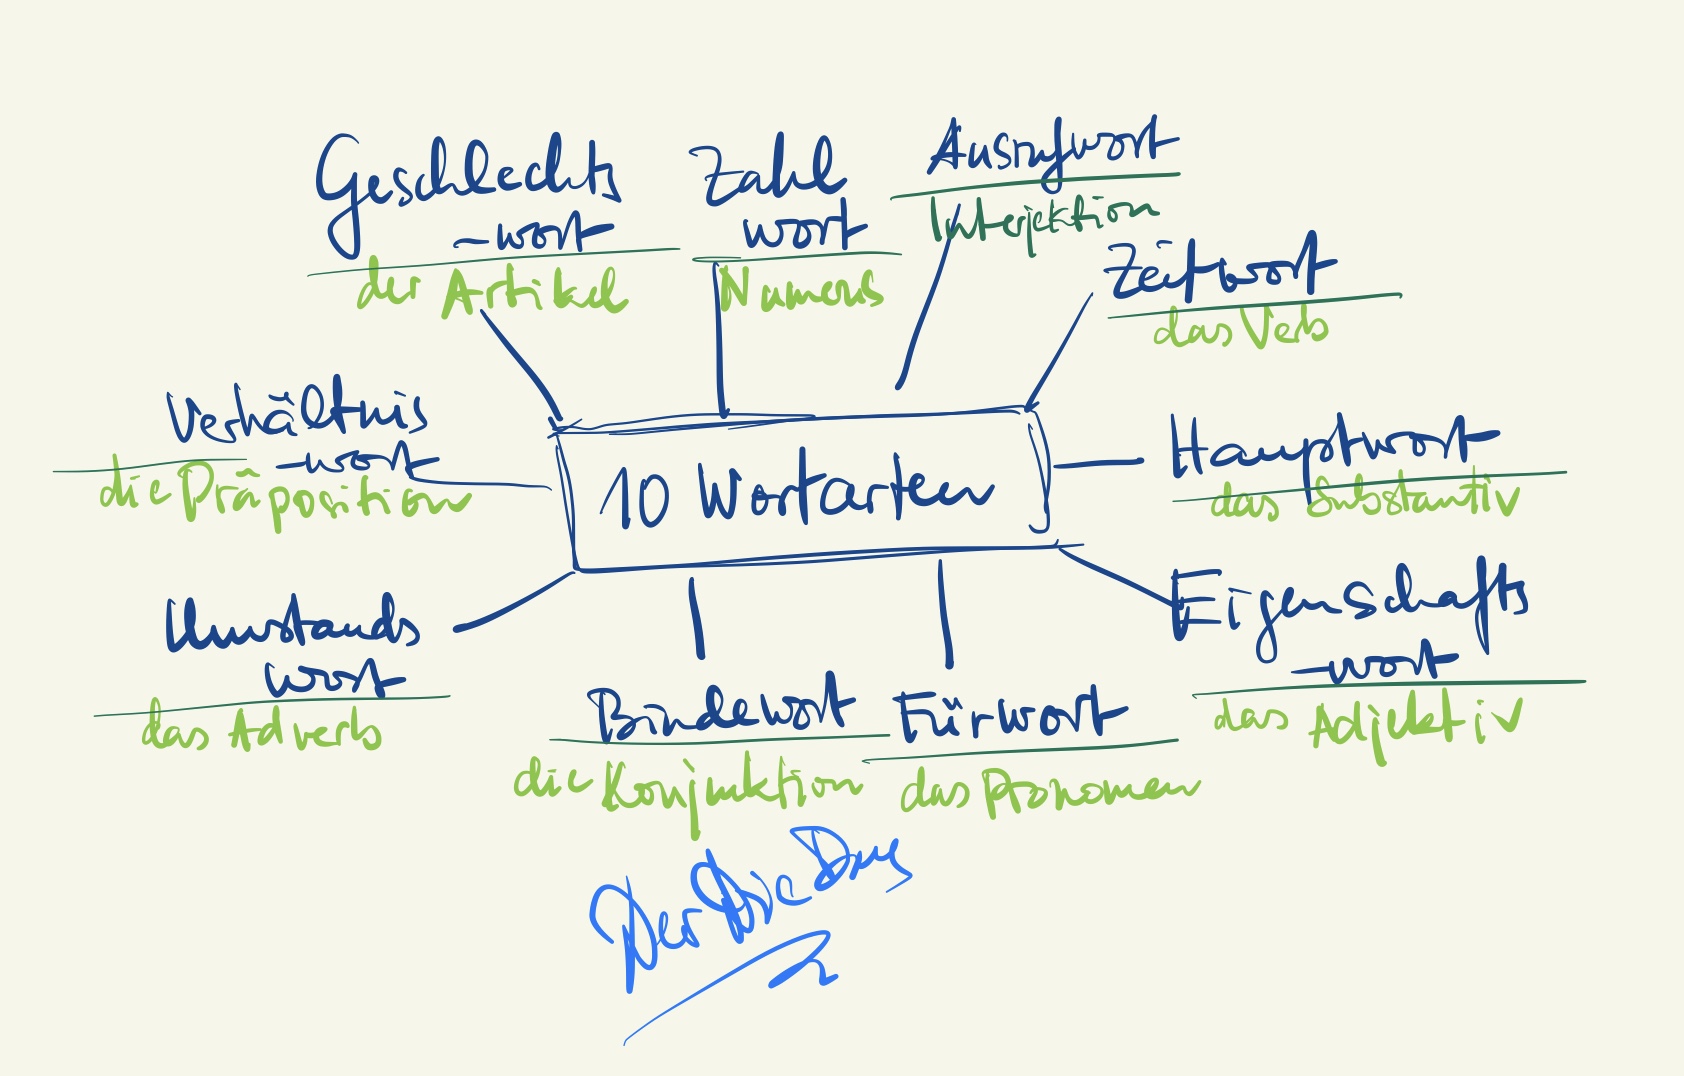 Geschlechts
-wort
der Artikel
Zahl
wort
Numerus
Ausrufwort
Interjektion
Zeitwort
das Verb
Verhältnis
-wort
die Präposition
10 Wortarten
Hauptwort
das Substantiv
Umstands
wort
das Adverb
Eigenschafts
-wort
das Adjektiv
Bindewort
die Konjunktion
Fürwort
das Pronomen
Der Die Das